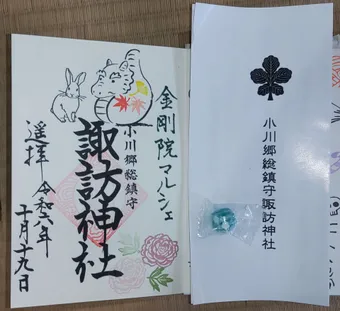 金剛院マルシェ
小川郷総鎮守
諏訪神社
遥拝
令和六年
十月十九日
小川郷総鎮守諏訪神社